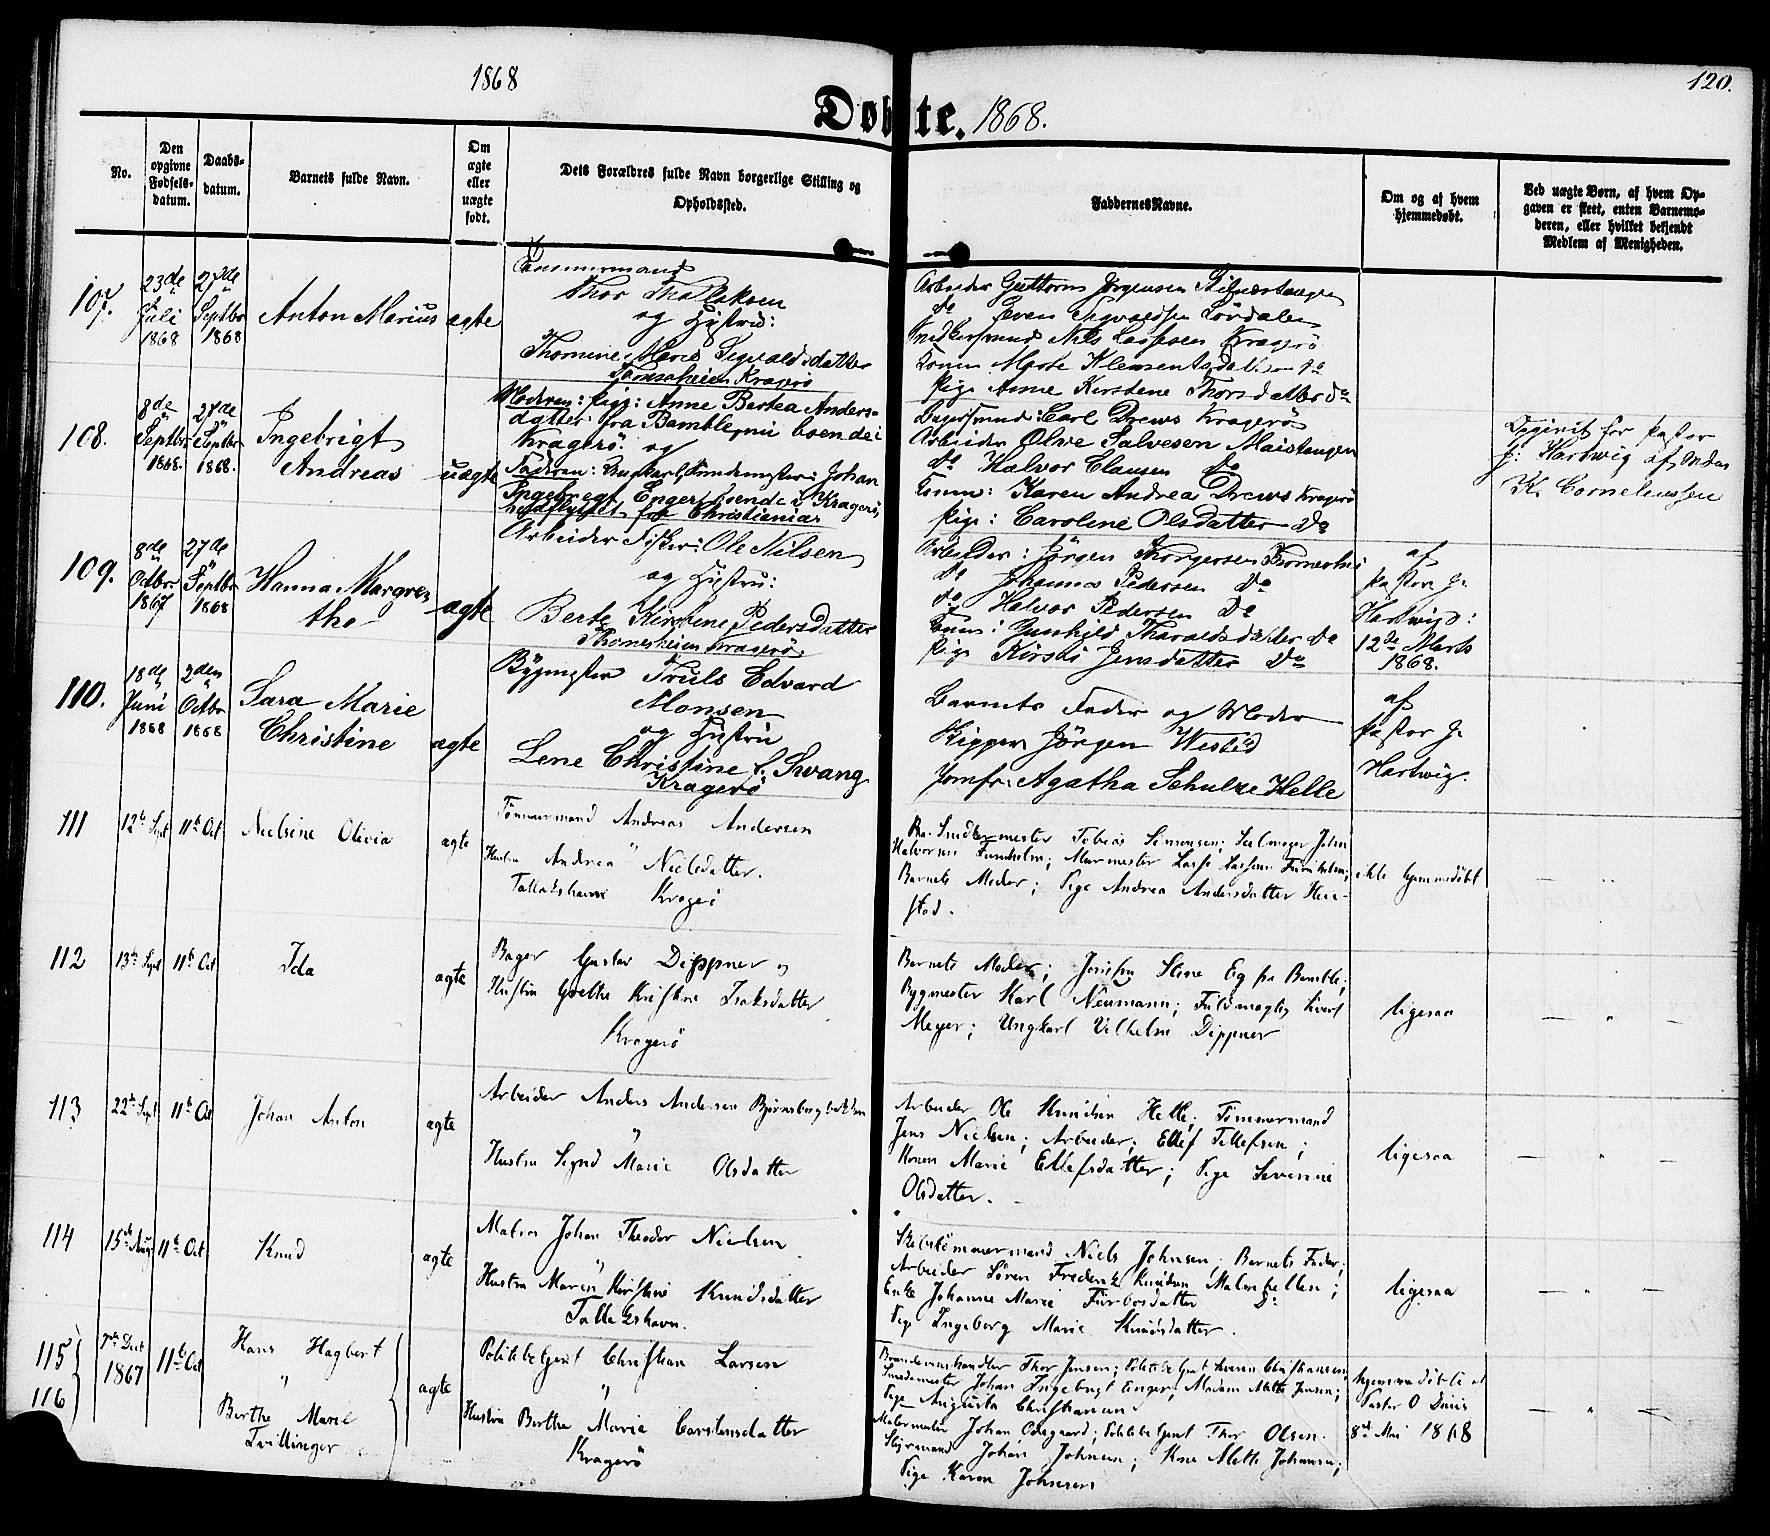 1868
120.
Døbte. 1868.
No.
Den opgivne Fødsels-datum.
Daabs-datum.
Barnets fulde Navn.
Om ægte eller uægte født.
Dets Forældres fulde Navn borgerlige Stilling og Opholdssted.
Faddernes Navne.
Om og af hvem hjemmedøbt.
Ved uægte Børn, af hvem Opgaven er skeet, enten Barnemoderen, eller hvilket bekjendt Medlem af Menigheden.
107.
23de Juli 1868
27de Septbr 1868
Anton Marius
ægte
Tømmermand
Thor
og Hustru:
Thomine Marie Sigvaldsdatter
Kragerø
Arbeider Guttorm Jørgensen
do Even Sigvaldsen Lövdalen
Snedkersvend Nils Kragerø
Konen Marte Klemensdatter do
Pige Anne Kirstene Thorsdatter do
108.
8de Septbr 1868.
27de Septbr 1868.
Ingebrigt
Andreas
uægte
Moderen: Pige: Anne Bertea Anders-
datter fra Bamble, nu boende i
Kragerø og
Faderen: Johan
Ingebregt Enger, boende i Kragerø,
indflyttet fra Christiania
Bagersvend: Carl Drews Kragerø
Arbeider Olve Salvesen Maistangen
do Halvor Clausen do
Konen: Karen Andrea Drews Kragerø
Pige: Caroline Olsdatter do
Opgivet for Pastor
J: Hartwig af
K. Corneliussen
109.
8de Octbr 1867
27de Septbr 1868
Hanna Margre-
the
ægte
Arbeider Fisker: Ole Nilsen
og Hustru:
Berte Kirstene Pedersdatter
Kragerø.
Arbeider: Jörgen Thorgersen
do Johannes Pedersen do
do Halvor Pedersen do
Konen: Gunhild Tharaldsdatter do
Pige Kirsti Jensdatter do
af
Pastor J.
Hartwig:
12te Marts
1868.
110.
18de Juni 1868
2den Octbr 1868
Sara Marie
Christine
ægte
Bygmester Truls Edvard
Monsen
og Hustru
Lene Christine f. Svang
Kragerø
Barnets Fader og Moder
Skipper Jörgen
Jomfr. Agatha Schulze Helle
af
Pastor J.
Hartwig.
111
12te Sept
11te Oct
Nielsine Olivia
ægte
Tömmermand Andreas Andersen
Hustru Andrea Nielsdatter.
Kragerø
Snedkermester Tobias Simonsen; Seilmager John
Halvorsen Furuholm; Murmester Lasse Lassesen Furuholm;
Barnets Moder; Pige Andrea Andersdatter Hei-
stad.
ikke hjemmedöbt
112
13te Sept
11te Oct
Ida
ægte
Bager Gustav Dippner og
Hustru Grethe Kristine Isaksdatter
Kragerö
Barnets Moder; Jomfru Stine Eg fra Bamble;
Bygmester Karl Neumann; Fuldmægtig
Meyer; Ungkarl Vilhelm Dippner
ligesaa
113
22de Sept
11te Oct
Johan Anton
ægte
Arbeider Anders Andersen Bjørnsbergbakken
Hustru Signd Marie Olsdatter
Arbeider Ole Knudsen Helle; Tömmermand
Jens Nielsen; Arbeider; Ellef Tellefsen;
Konen Marie Ellefsdatter; Pige Severine
Olsdatter.
ligesaa
114
15de Aug
11te Oct
Knud
ægte
Matros Johan Theodor Nielsen
Hustru Maren Kirstine Knudsdatter
Skibstömmermand Niels Johnsen; Barnets Fader;
Arbeider Sören Frederik Knudsen Malmhellen;
Enke Johanne Marie do
Pige Ingeborg Marie Knudsdatter.
ligesaa
115
116
7de Dec 1867
11te Oct
Hans Hagbert
"
Berthe Marie
Tvillinger
ægte
Politibetjent Christian Larsen
Hustru Berthe Marie Carstensdatter
Kragerö
Brændevinshandler Thor Jensen; Politibetjent Christiansen
Smedemester Johan Ingebregt Enger; Madam Mette Jensen;
Pige Augusta Christiansen
Malermester Johan Odegaard; Politibetjent Thor Olsen.
Styrmand Johan Johnsen; Kone Mette Johansen;
Pige Karen Johnsen
hjemmedöbte af
Pastor O
8de Mai 1868